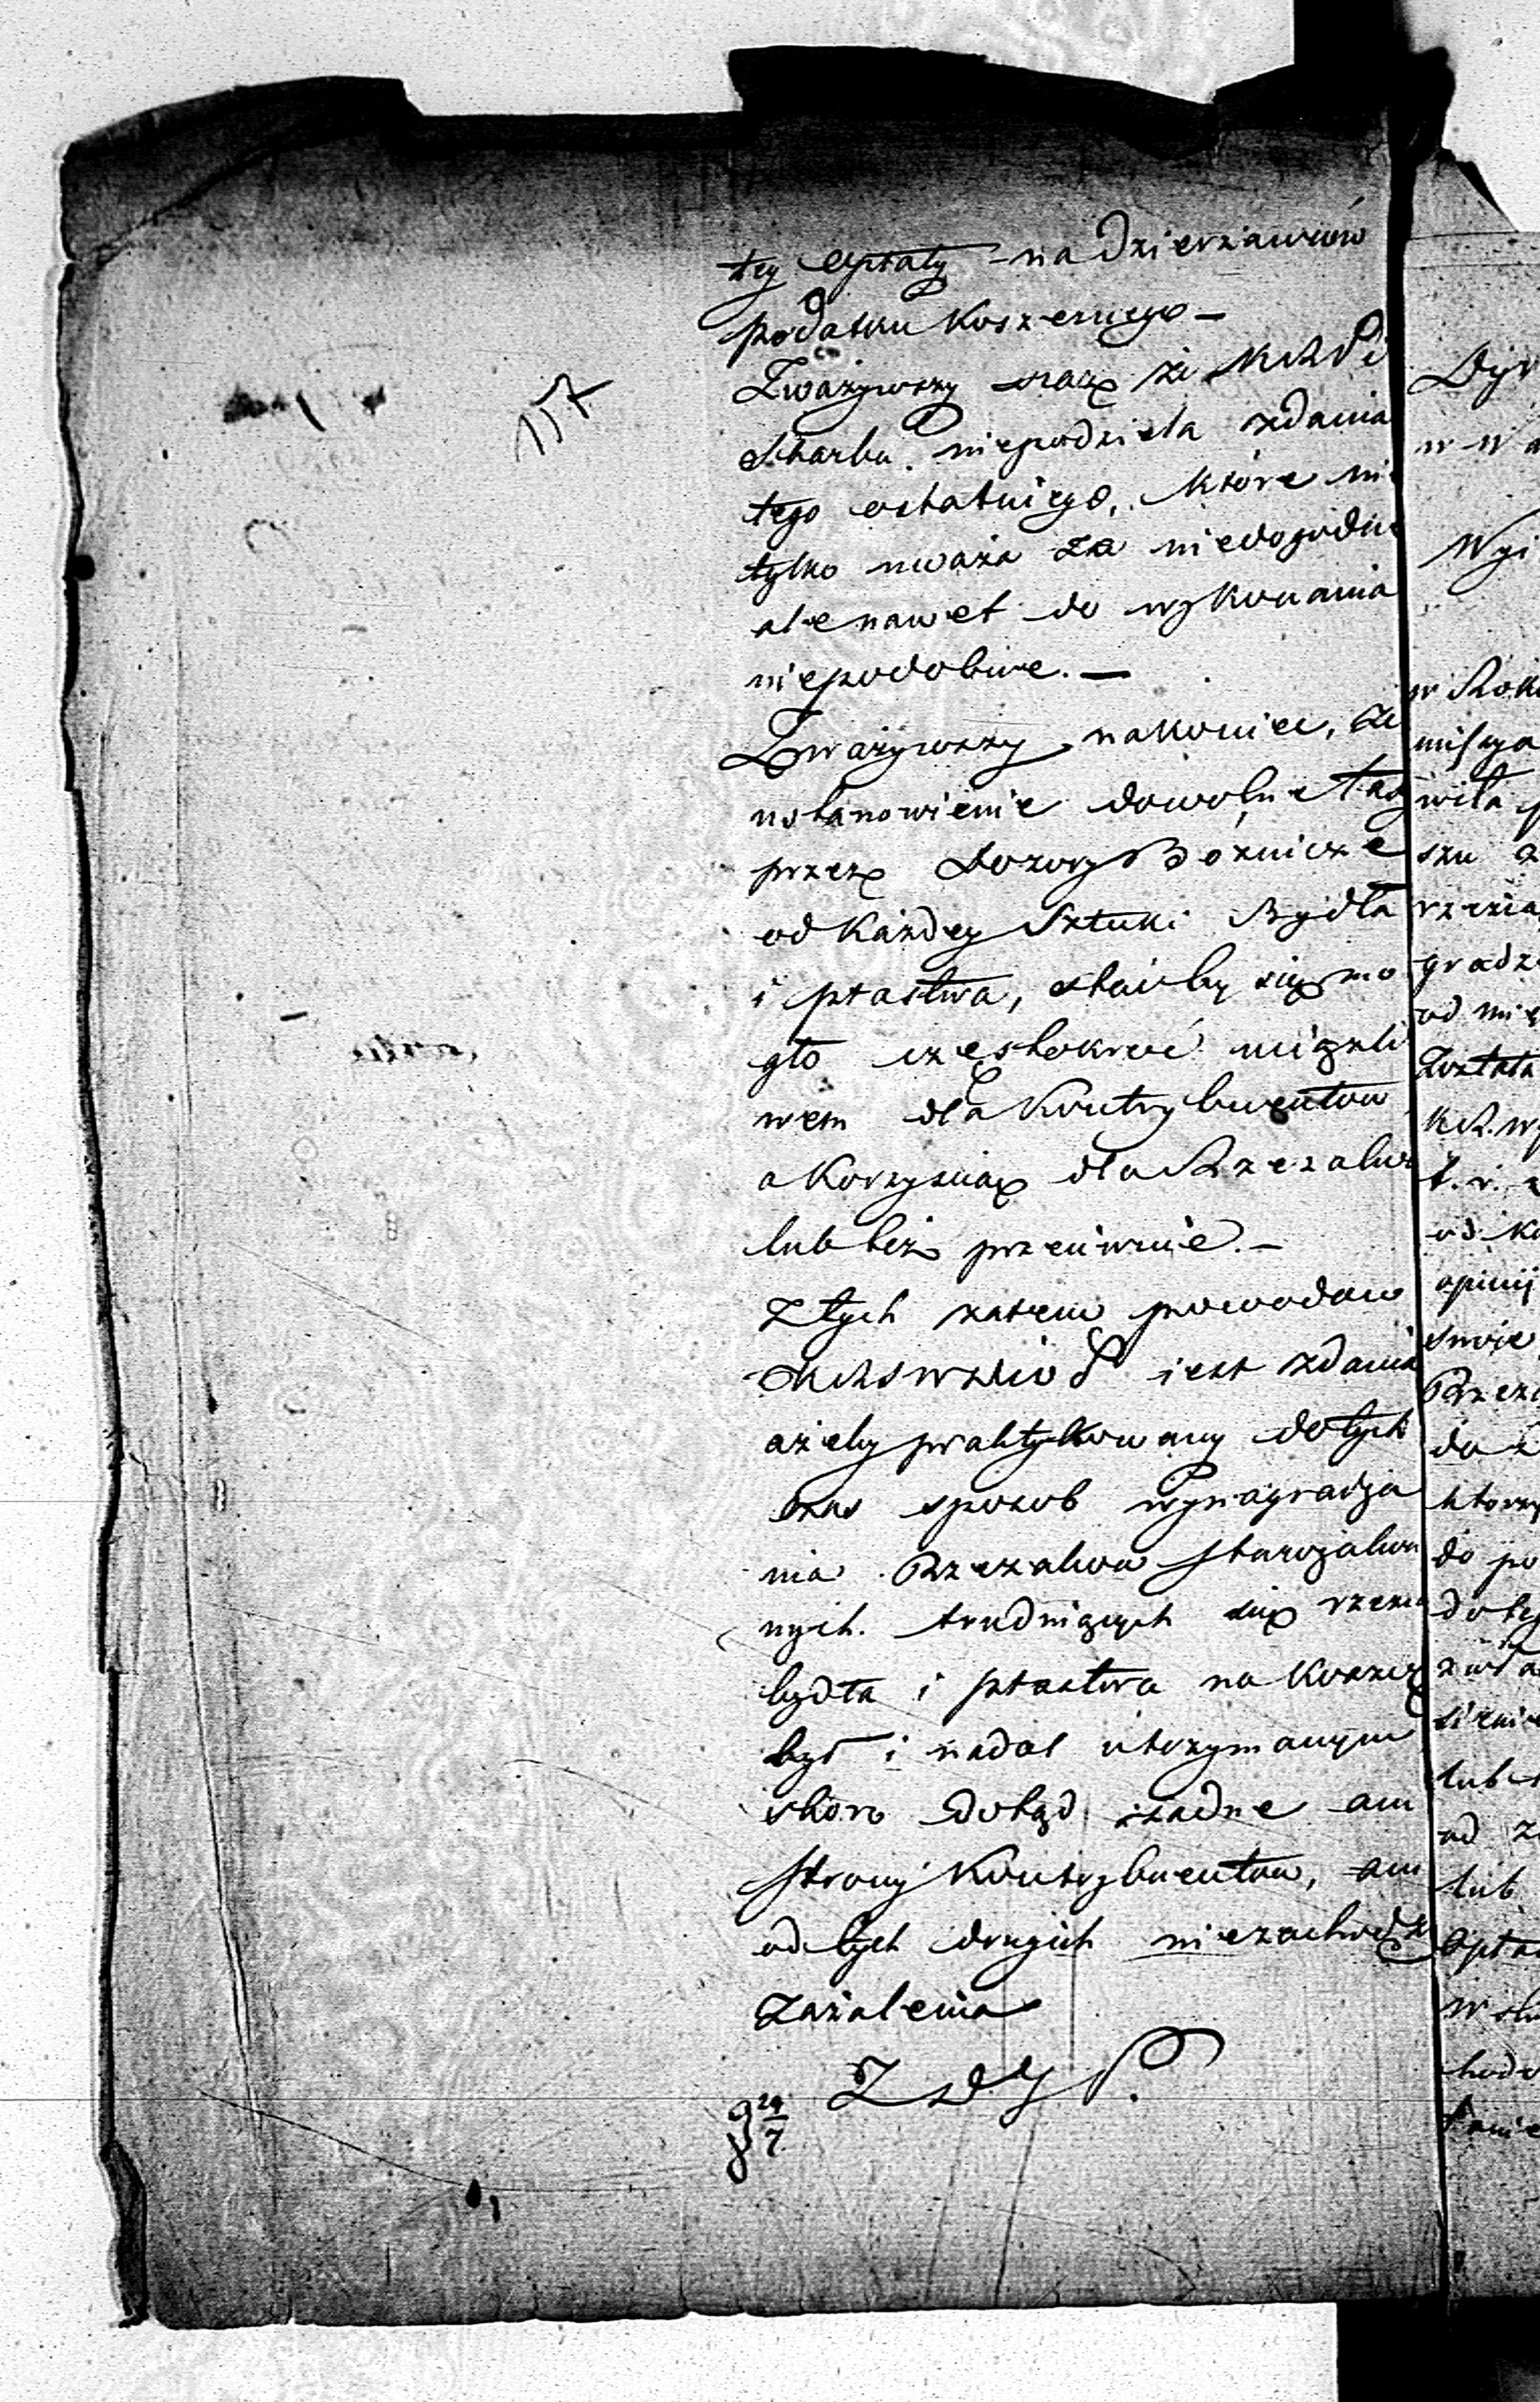 157
tey opłaty na dzierżawców
podatku koszernego —
Zważywszy oraz że KRPi
Skarbu niepodziela zdania
tego ostatniego, które nie
tylko uważa za niedogodne
ale nawet do wykonania
niepodobne. —
Zważywszy nakoniec, że
ustanowienie dowolne tax
przez Dozory Bóżnicze
od każdey Sztuki Bydła
i ptastwa, staćby się mo
gło częstokroć uciążli
wem dla Kontrybuentów
a korzyścią dla Rzezaków
lub też przeciwnie. —
Z tych zatem powodów
jest zdania
ażeby praktykowany dotych
czas sposób wynagradza
nia Rzezaków Starozakon
nych trudniących się rzezią
bydła i ptastwa na koszer
był i nadal utrzymanym
skoro dotąd żadne ani
strony Kontrybuentów, ani
od tych drugich niezachodzą
zażalenia
24
7
Dyr
Wyi
w Roku
wiła
szu
grodze
od
Została
od
opinij
swoie
Rzeza
do
którzy
do po
doty
lub
od
lub
Opła